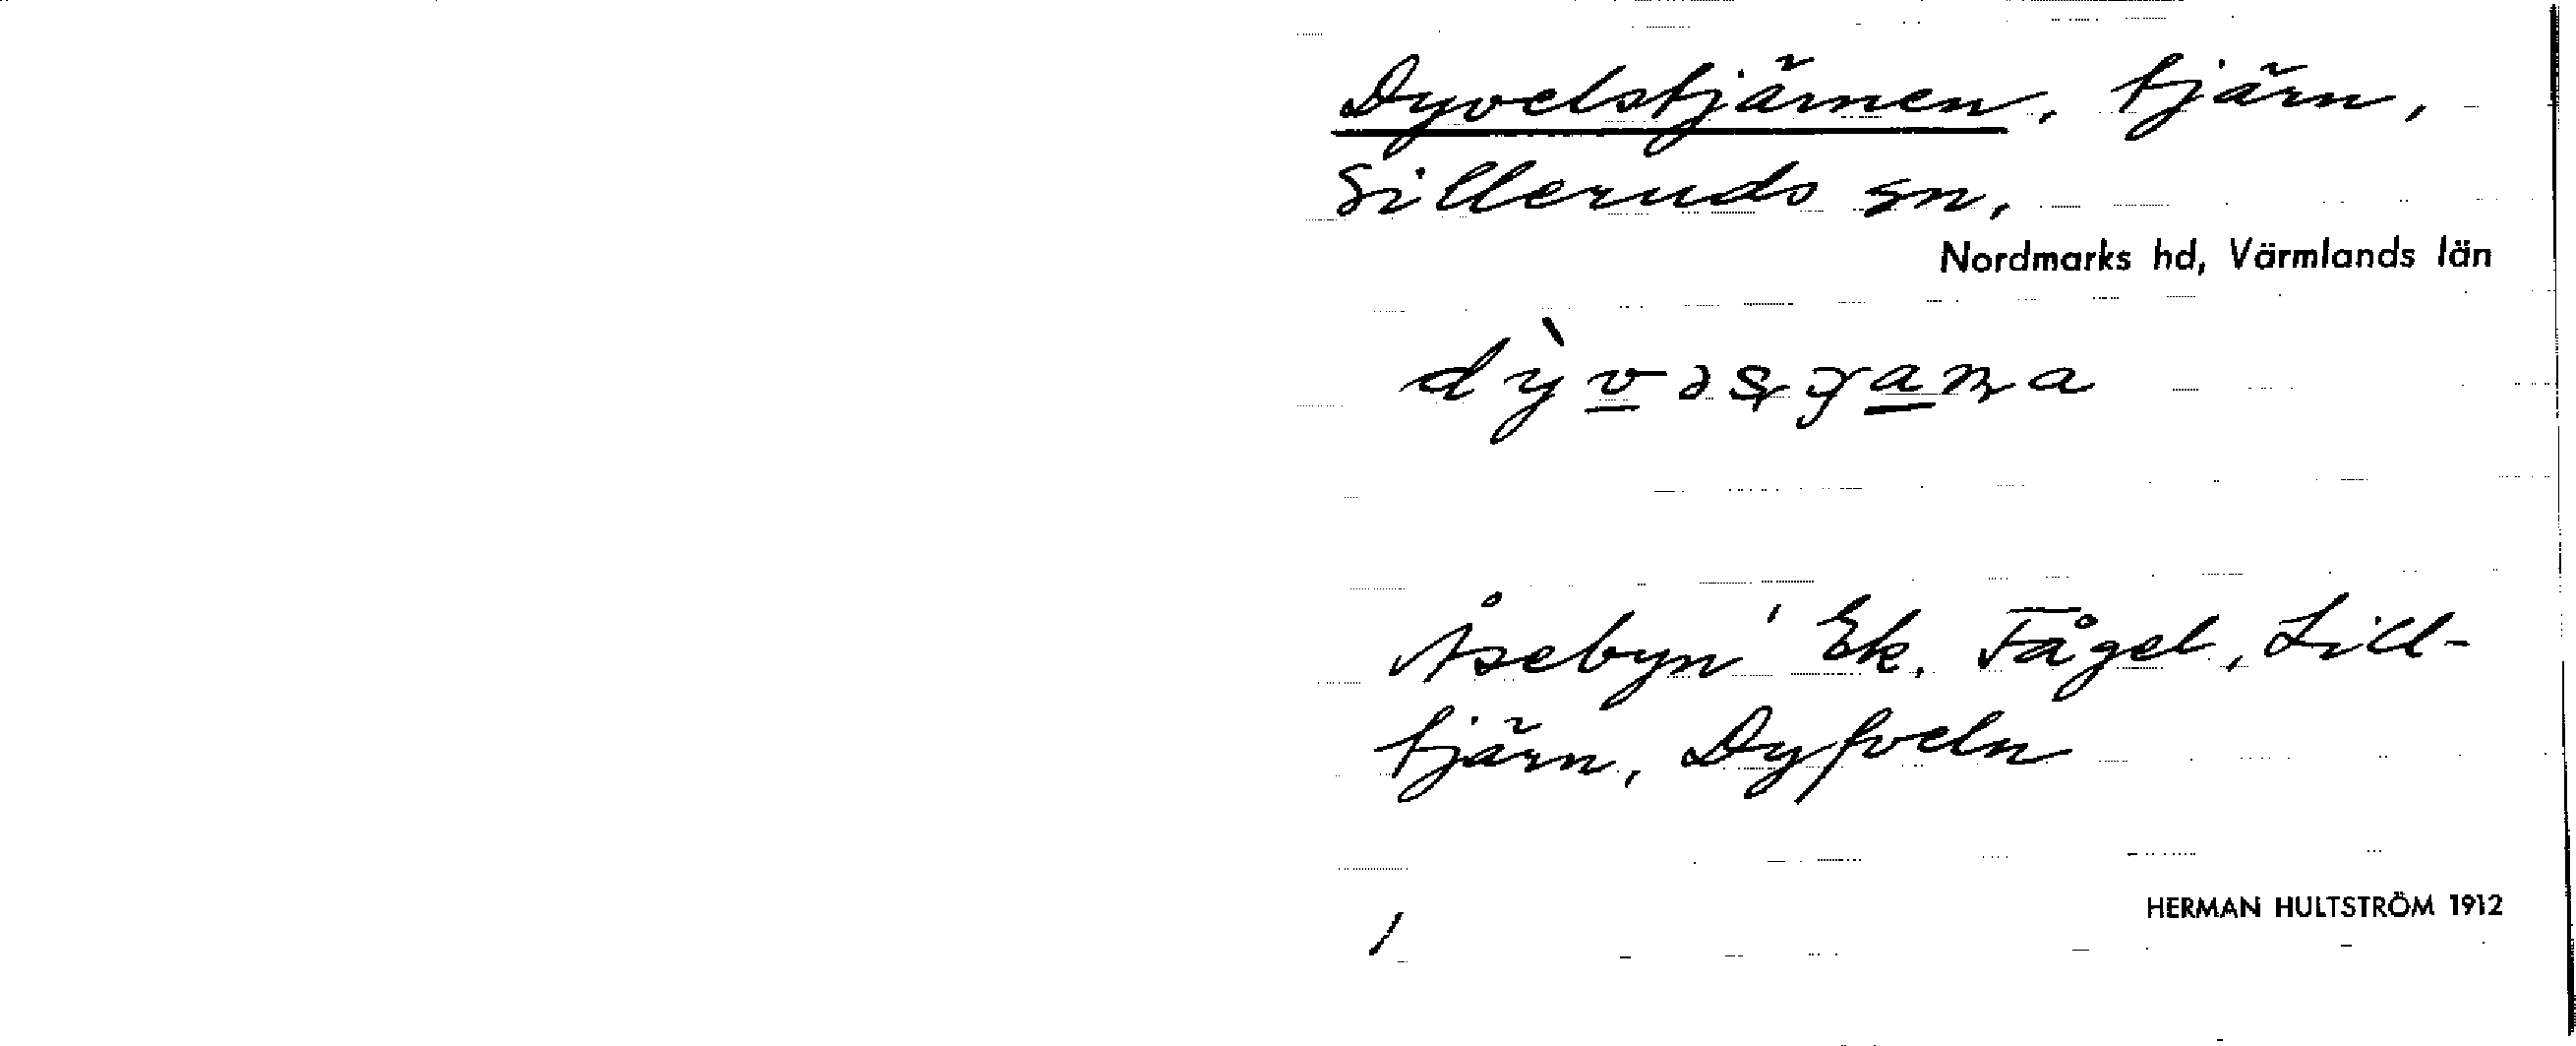 Dyvelstjärnen, tjärn,
Silleruds sn,
Nordmarks hd, Värmlands län
Åsebyn Ek. Fågel, Lill-
tjärn, Dyfveln
HERMAN HULTSTRÖM 1912